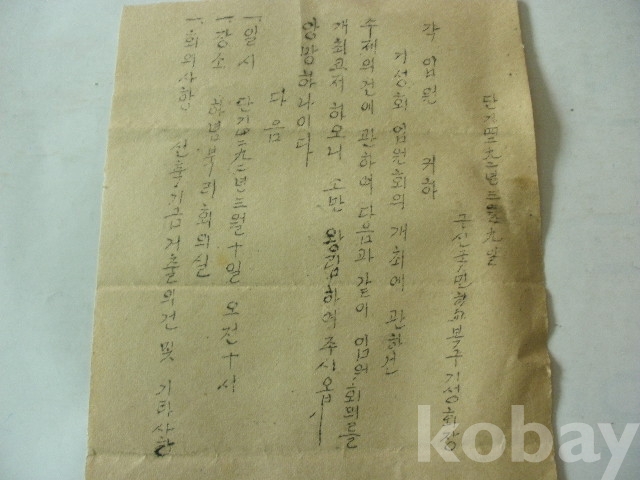 단기四二九二년三월九일
국민학교복구기성회장
각 임원 귀하
기성회 임원회의 개최에 관한건
수제의건에 관하여 다음과 같이 임원회의를
개최코저 하오니 왕림하여 주시옵기
앙망하나이다
다음
一. 일시 단기四二九二년三월十일 오전十시
一. 장소 회의실
一. 회의사항 건축기금거출의건 및 기타사항
kobay